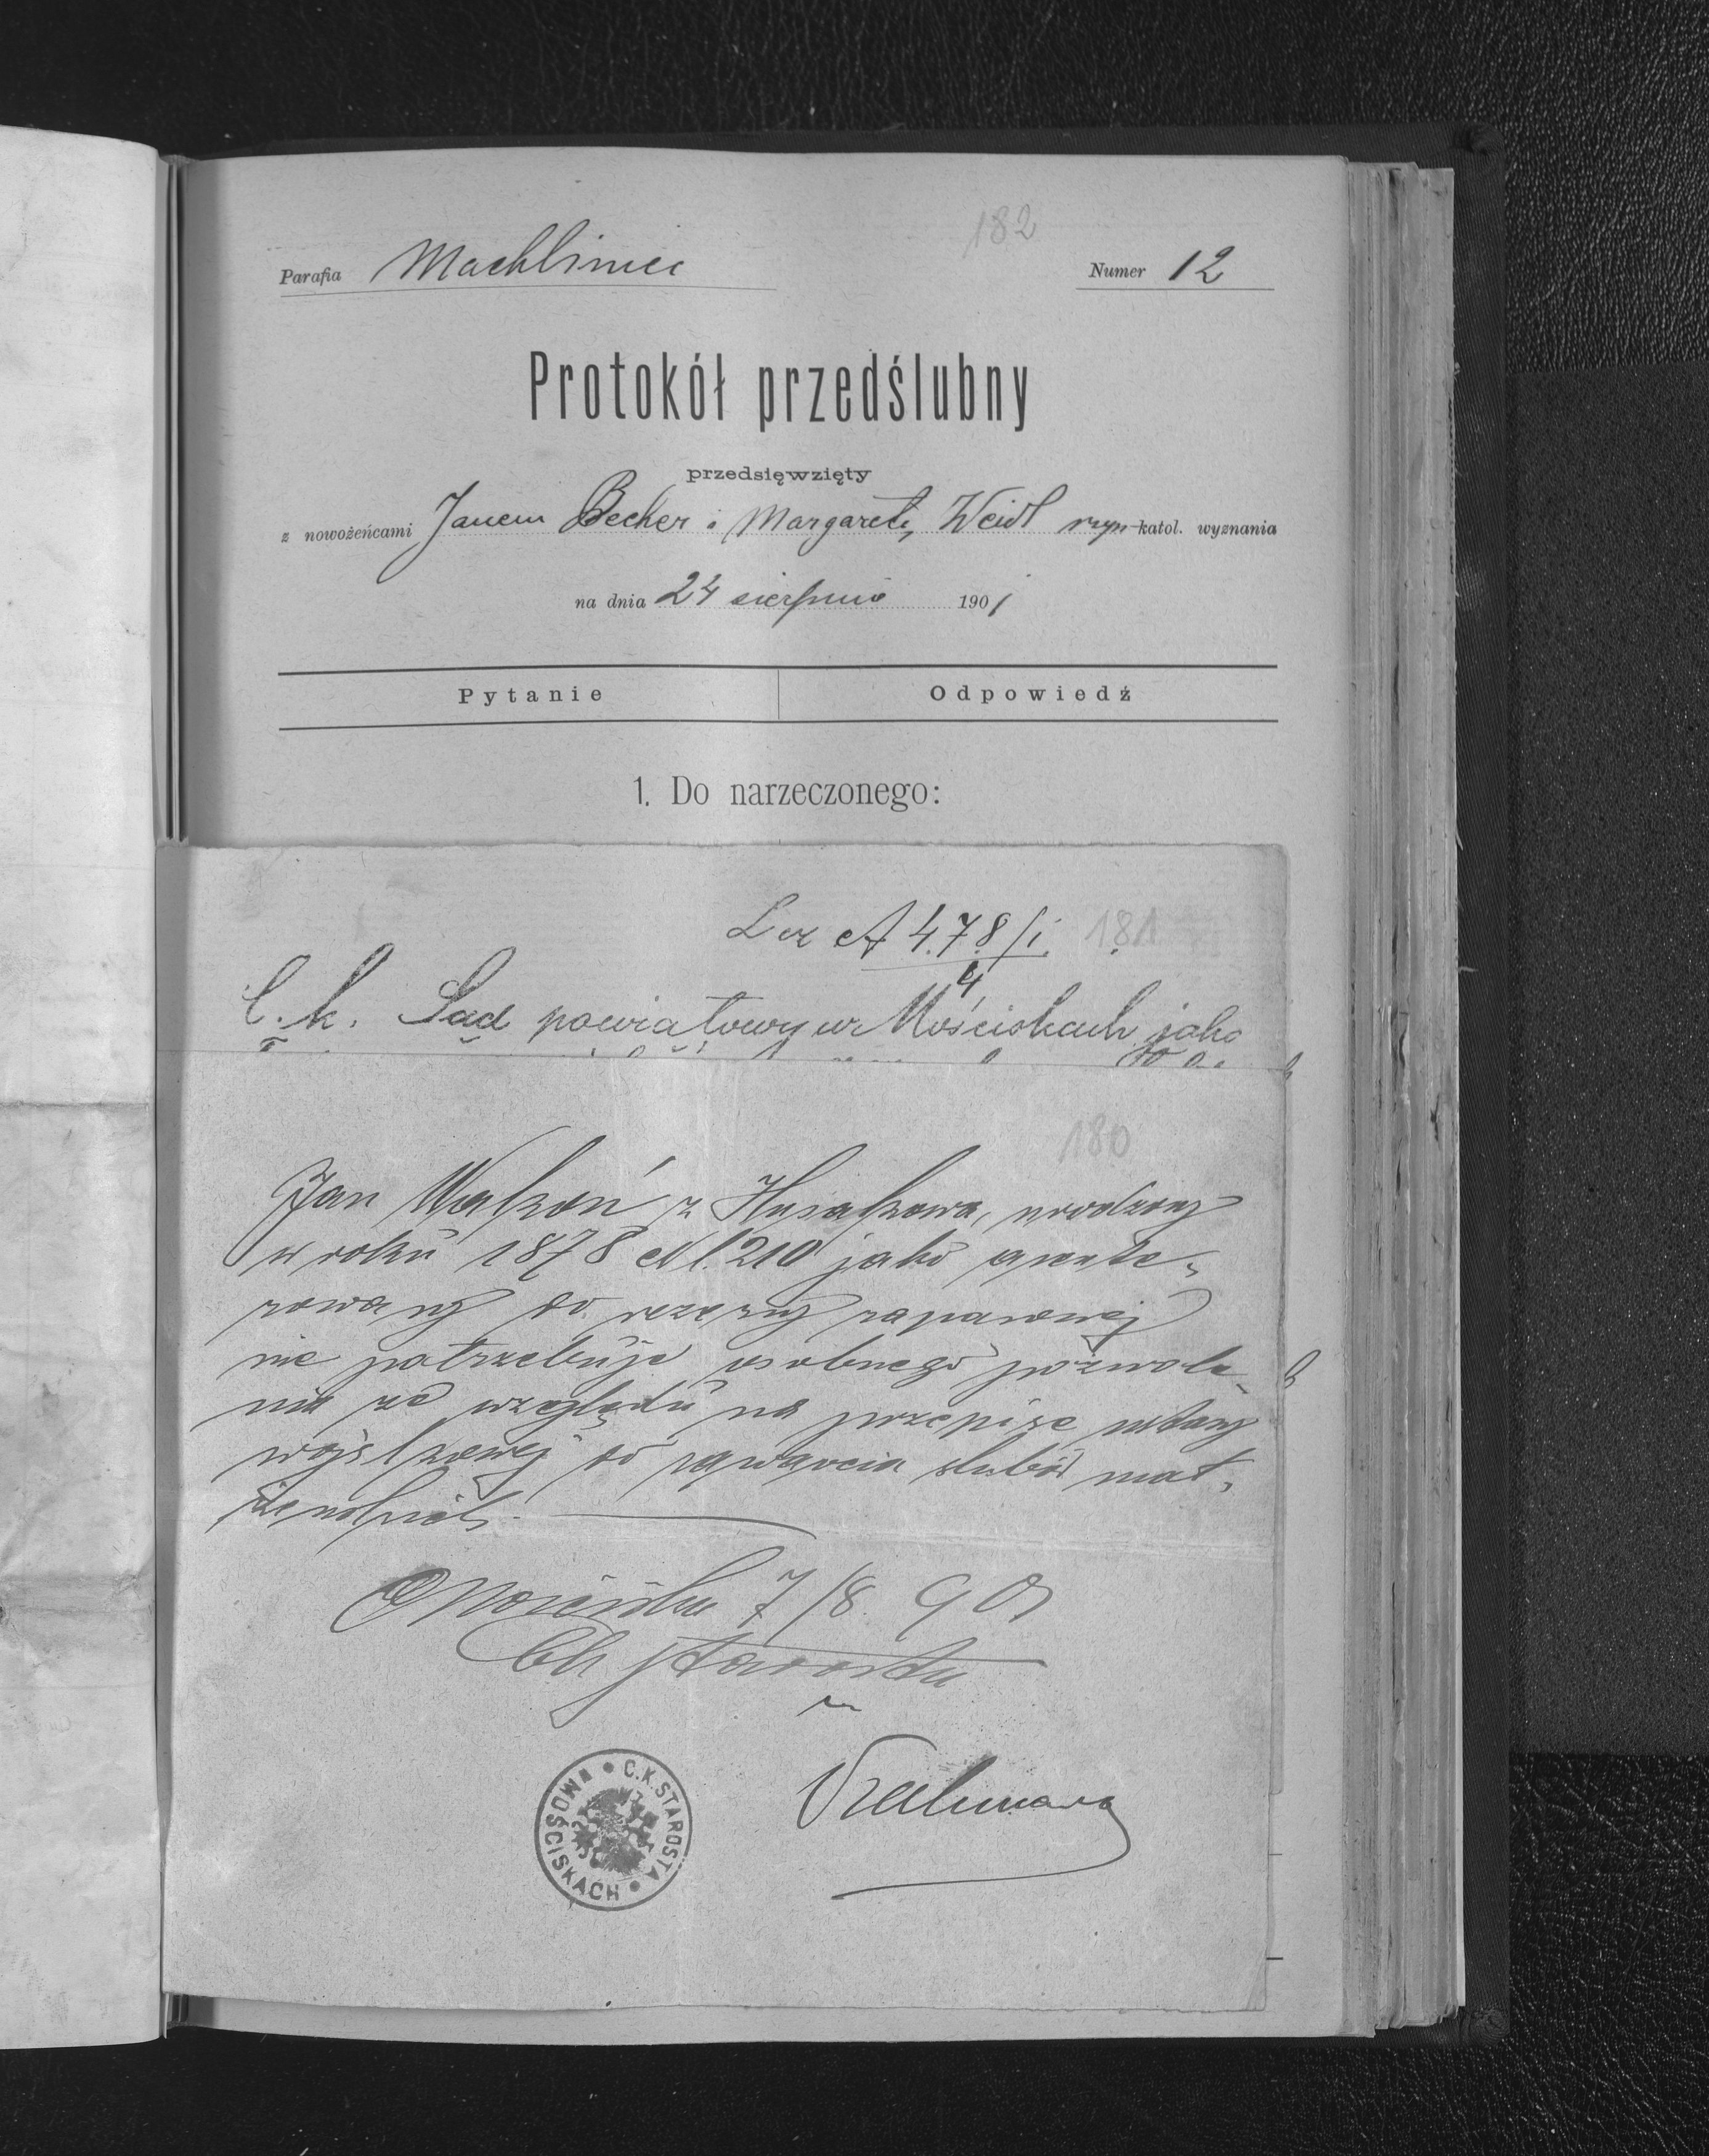 182
Parafia Machliniec Numer 12
Protokół przedślubny
przedsięwzięty
z nowożeńcami Janem Becher i Margaretą Weidl rzym-katol. wyznania
na dnia 24 sierpnia 1901
Pytanie Odpowiedź
1. Do narzeczonego:
L cz A 478/1 181
4
C. k. Sąd powiatowy w Mościskach jako
180
Jan Wałkoń z Husakowa, urodzony
w roku 1878 Nl. 210 jako asente-
rowany do rezerwy zapasowej
nie potrzebuje osobnego pozwole-
nia ze względu na przepise ustawy
wojskowej do zawarcia ślubów mał-
żeńskich.
Mościska 7/8 901
Ck Starosta
C.K. STAROSTA W MOŚCISKACH